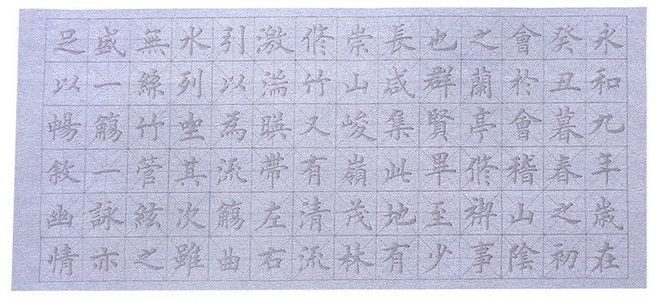 永和九年歲在
癸丑暮春之初
會於會稽山陰
之蘭亭脩禊事
也群賢畢至少
長咸集此地有
崇山峻嶺茂林
脩竹又有清流
激湍暎帶左右
引以為流觴曲
水列坐其次雖
無絲竹管絃之
盛一觴一詠亦
足以暢敘幽情